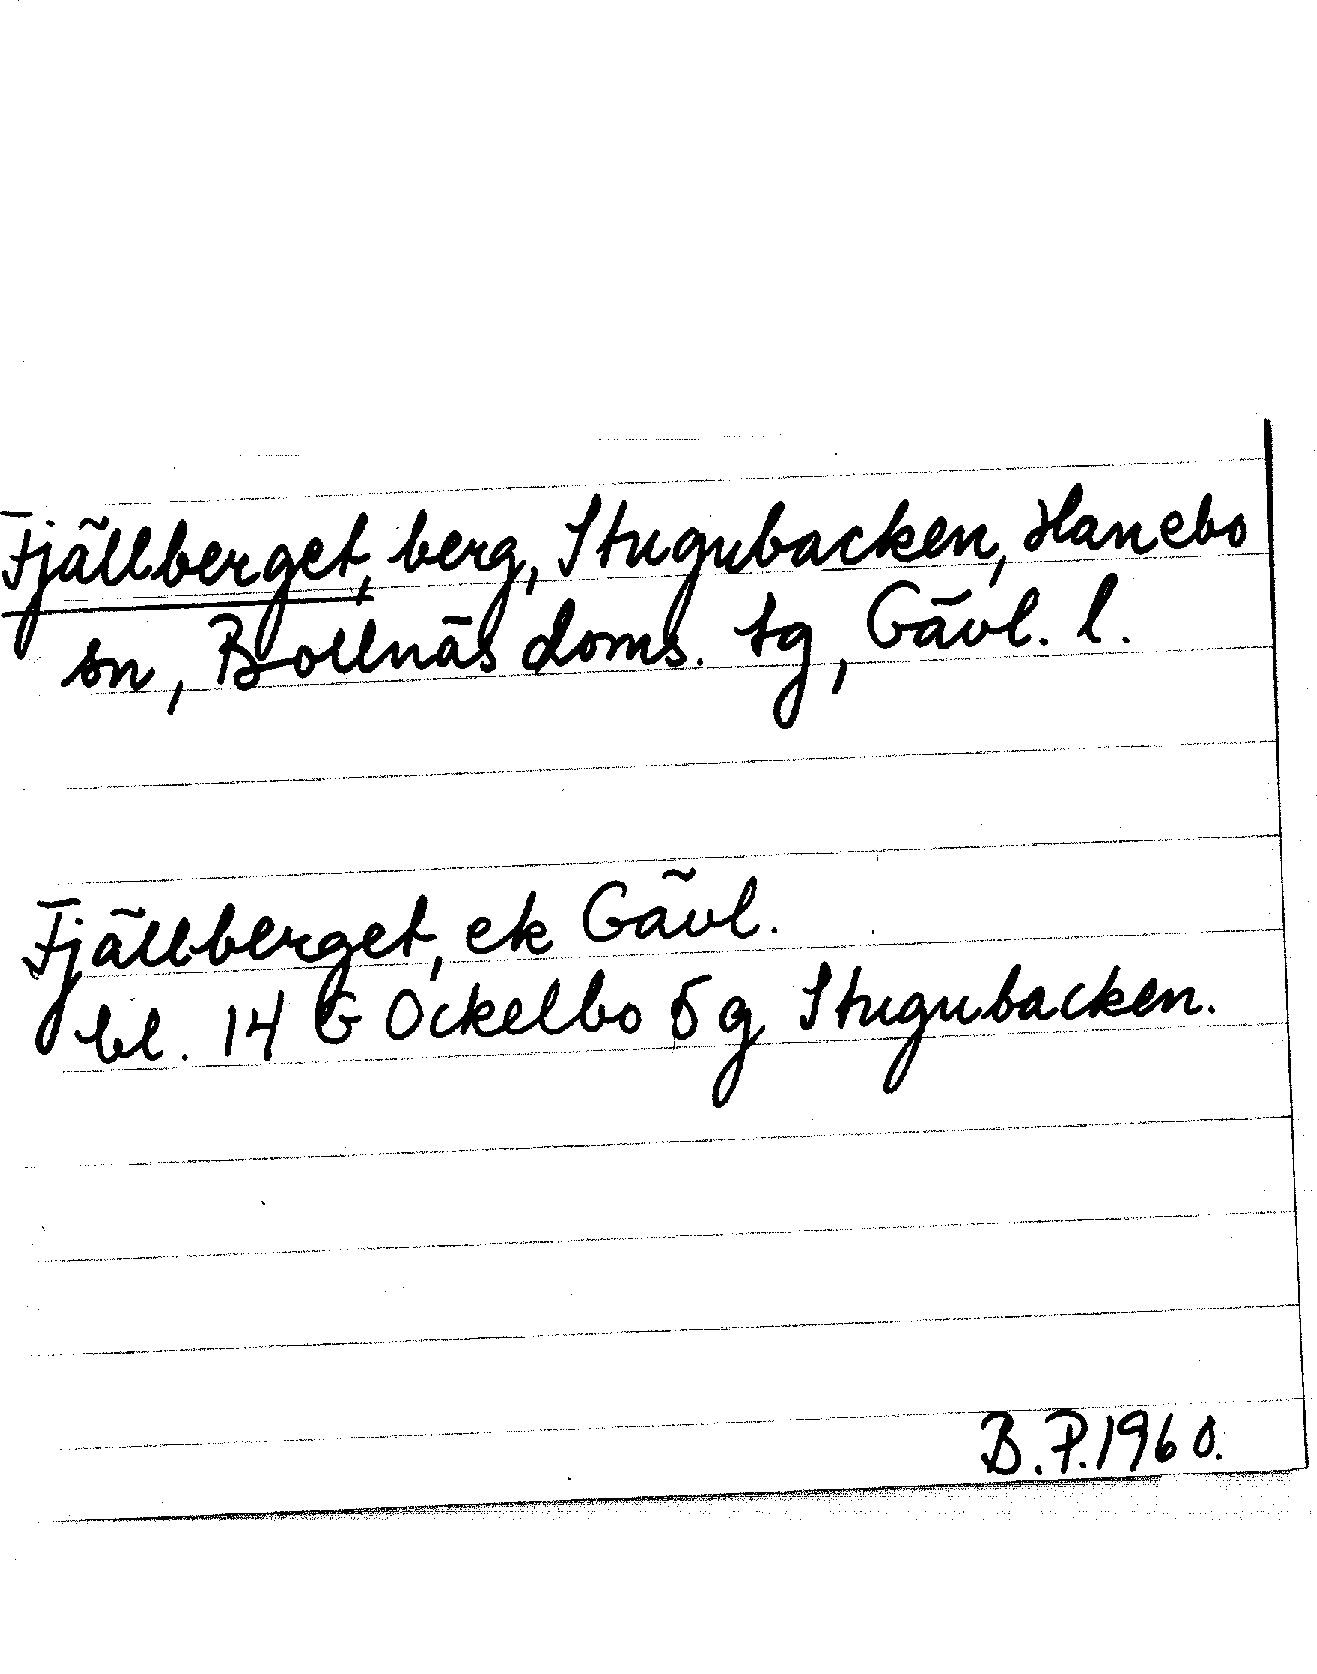 Fjällberget, berg, Stugubacken, Hanebo
sn, Bollnäs doms. tg, Gävl. l.
Fjällberget, ek Gävl.
bl. 14 G Ockelbo 5 g Stugubacken.
B.P. 1960.